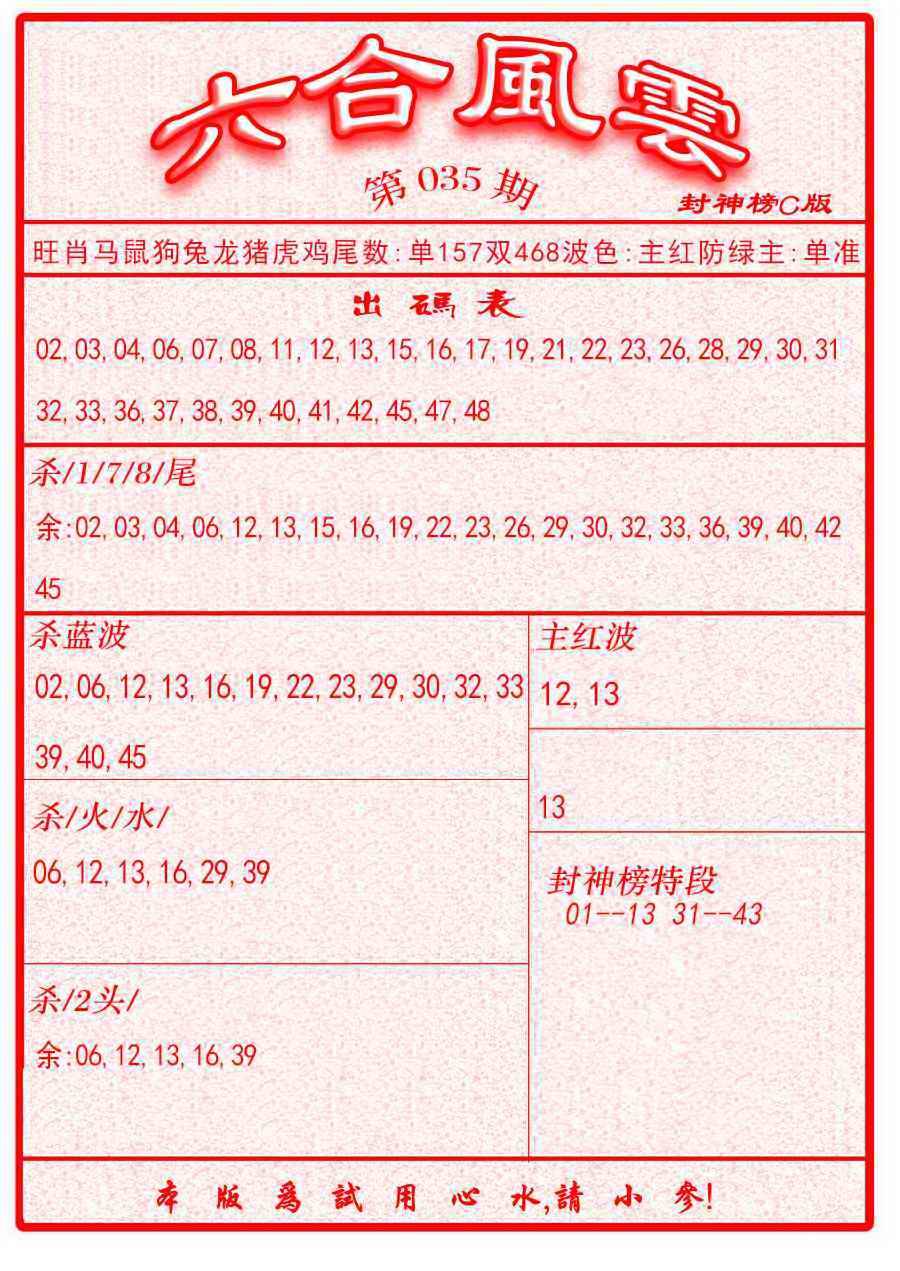 六合風雲
第035期
封神榜C版
旺肖马鼠狗兔龙猪虎鸡尾数:单157双468波色:主红防绿主:单准
出碼表
02,03,04,06,07,08,11,12,13,15,16,17,19,21,22,23,26,28,29,30,31
32,33,36,37,38,39,40,41,42,45,47,48
杀/1/7/8/尾
余:02,03,04,06,12,13,15,16,19,22,23,26,29,30,32,33,36,39,40,42
45
杀蓝波
02,06,12,13,16,19,22,23,29,30,32,33
39,40,45
主红波
12,13
13
杀/火/水/
06,12,13,16,29,39
封神榜特段
01--13 31--43
杀/2头/
余:06,12,13,16,39
本版爲試用心水,請小參!